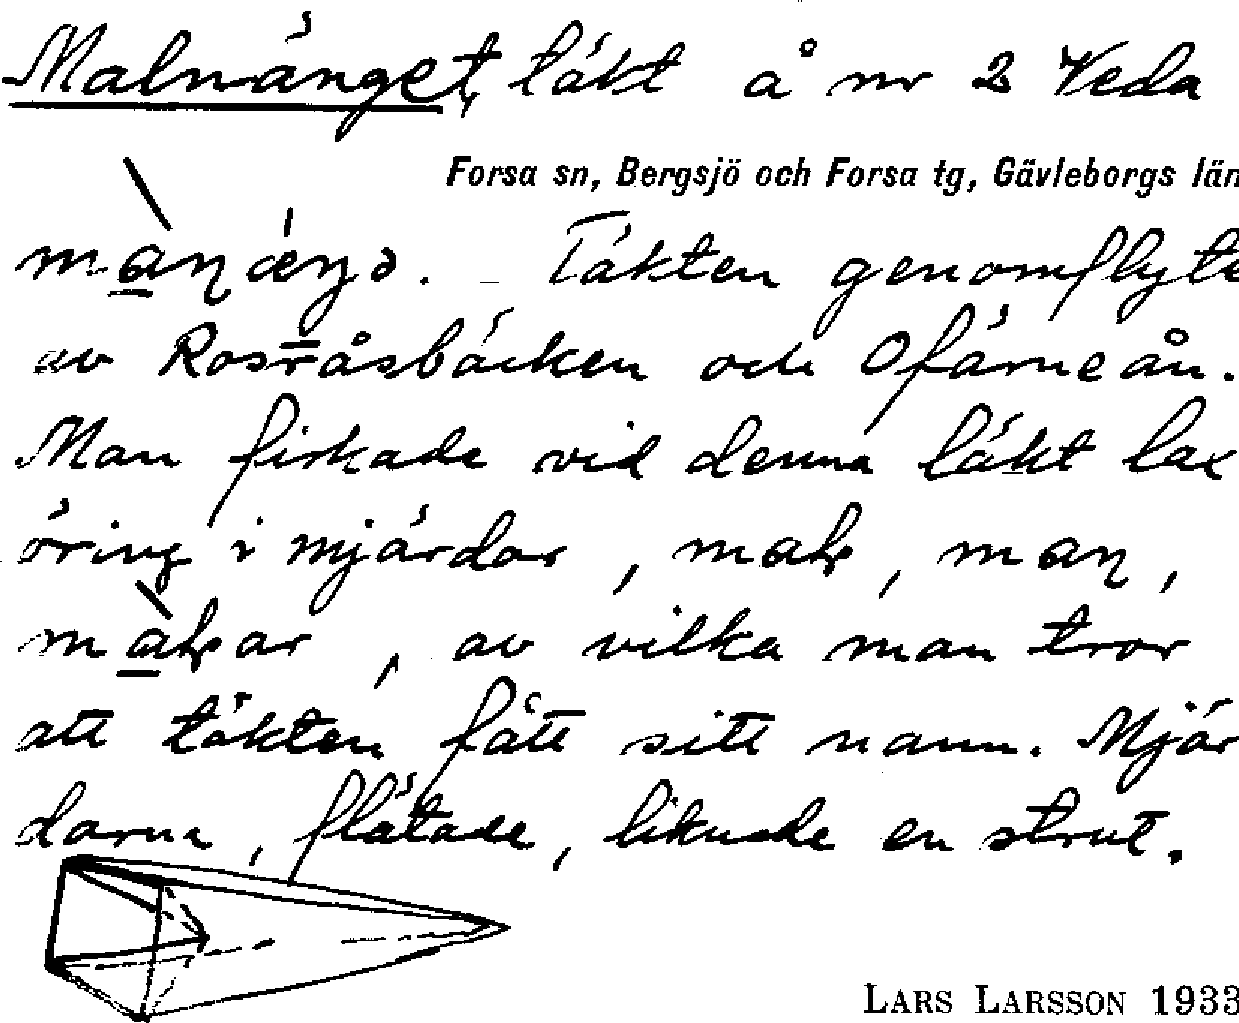 Malnänget, täkt å nr 2 Veda
Forsa sn, Bergsjö och Forsa tg, Gävleborgs län
Täkten genomflyte
av Rosråsbäcken och Ofärneån.
Man fiskade vid denna täkt lax
öring i mjärdar, maḷ, maŋ,
maḷar, av vilka man tror
att täkten fått sitt namn. Mjär
darna, flätade, liknade en strut.
LARS LARSSON 1933